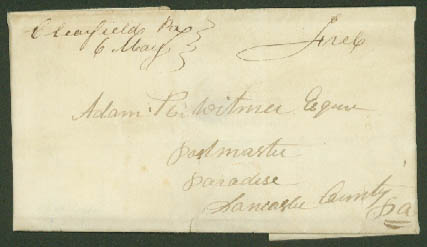 Clearfield Pa
6 May
Free
Adam K. Witmer Esquire
postmaster
paradise
Lancaster County
pa